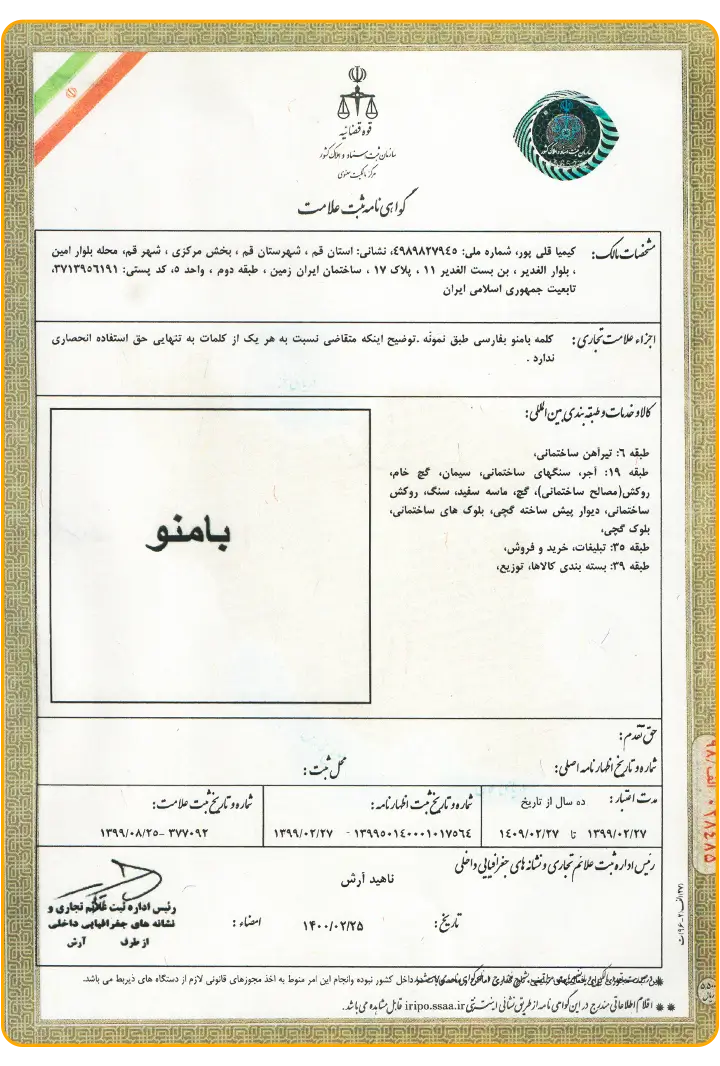 قوه قضائیه
سازمان ثبت اسناد و املاک کشور
مرکز مالکیت معنوی
گواهی نامه ثبت علامت
سازمان ثبت اسناد و املاک کشور
مشخصات مالک: کیمیا قلی پور، شماره ملی: ٤٩٨٩٨٢٧٩٤٥، نشانی: استان قم ، شهرستان قم ، بخش مرکزی ، شهر قم، محله بلوار امین
، بلوار الغدیر ، بن بست الغدیر ١١ ، پلاک ١٧ ، ساختمان ایران زمین ، طبقه دوم ، واحد ٥، کد پستی: ٣٧١٣٩٥٦١٩١،
تابعیت جمهوری اسلامی ایران
اجزاء علامت تجاری: کلمه بامنو بفارسی طبق نمونه .توضیح اینکه متقاضی نسبت به هر یک از کلمات به تنهایی حق استفاده انحصاری
ندارد .
کالا و خدمات و طبقه بندی بین المللی:
طبقه ٦: تیرآهن ساختمانی،
طبقه ١٩: آجر، سنگهای ساختمانی، سیمان، گچ خام،
روکش(مصالح ساختمانی)، گچ، ماسه سفید، سنگ، روکش
ساختمانی، دیوار پیش ساخته گچی، بلوک های ساختمانی،
بلوک گچی،
طبقه ٣٥: تبلیغات، خرید و فروش،
طبقه ٣٩: بسته بندی کالاها، توزیع،
بامنو
حق تقدم:
شماره و تاریخ اظهارنامه اصلی: محل ثبت:
مدت اعتبار: ده سال از تاریخ
١٣٩٩/٠٢/٢٧ تا ١٤٠٩/٠٢/٢٧
شماره و تاریخ ثبت اظهارنامه:
١٣٩٩٥٠١٤٠٠٠١٠١٧٥٦٤ - ١٣٩٩/٠٢/٢٧
شماره و تاریخ ثبت علامت:
٣٧٧٠٩٢ -١٣٩٩/٠٨/٢٥
رئیس اداره ثبت علائم تجاری و نشانه های جغرافیایی داخلی
ناهید آرش
تاریخ: ١٤٠٠/٠٢/٢٥ امضاء:
رئیس اداره ثبت علائم تجاری و
نشانه های جغرافیایی داخلی
از طرف آرش
داخل کشور نبوده وانجام این امر منوط به اخذ مجوزهای قانونی لازم از دستگاه های ذیربط می باشد.
** اقلام اطلاعاتی مندرج در این گواهی نامه از طریق نشانی اینترنتی iripo.ssaa.ir قابل مشاهده می باشد.
٩٨/الف ٠٢٨٤٨٥
ریال